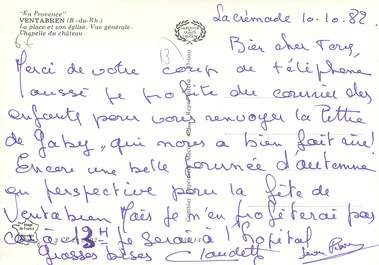 "En Provence"
VENTABREN (B.-du-Rh.)
La place et son église. Vue générale-
Chapelle du château.
La crémade 10.10.82
Bien cher Tous,
Merci de votre coup de téléphone
aussi je profite du courrier des
enfants pour vous renvoyer la lettre
de Gaby, qui nous a bien fait rire!
Encore une belle journée d'automne
en perspective pour la fête de
Ventabren Mais je n'en profiterai pas
car à 13H je serai à l'hopital
Grosses bises Claudette